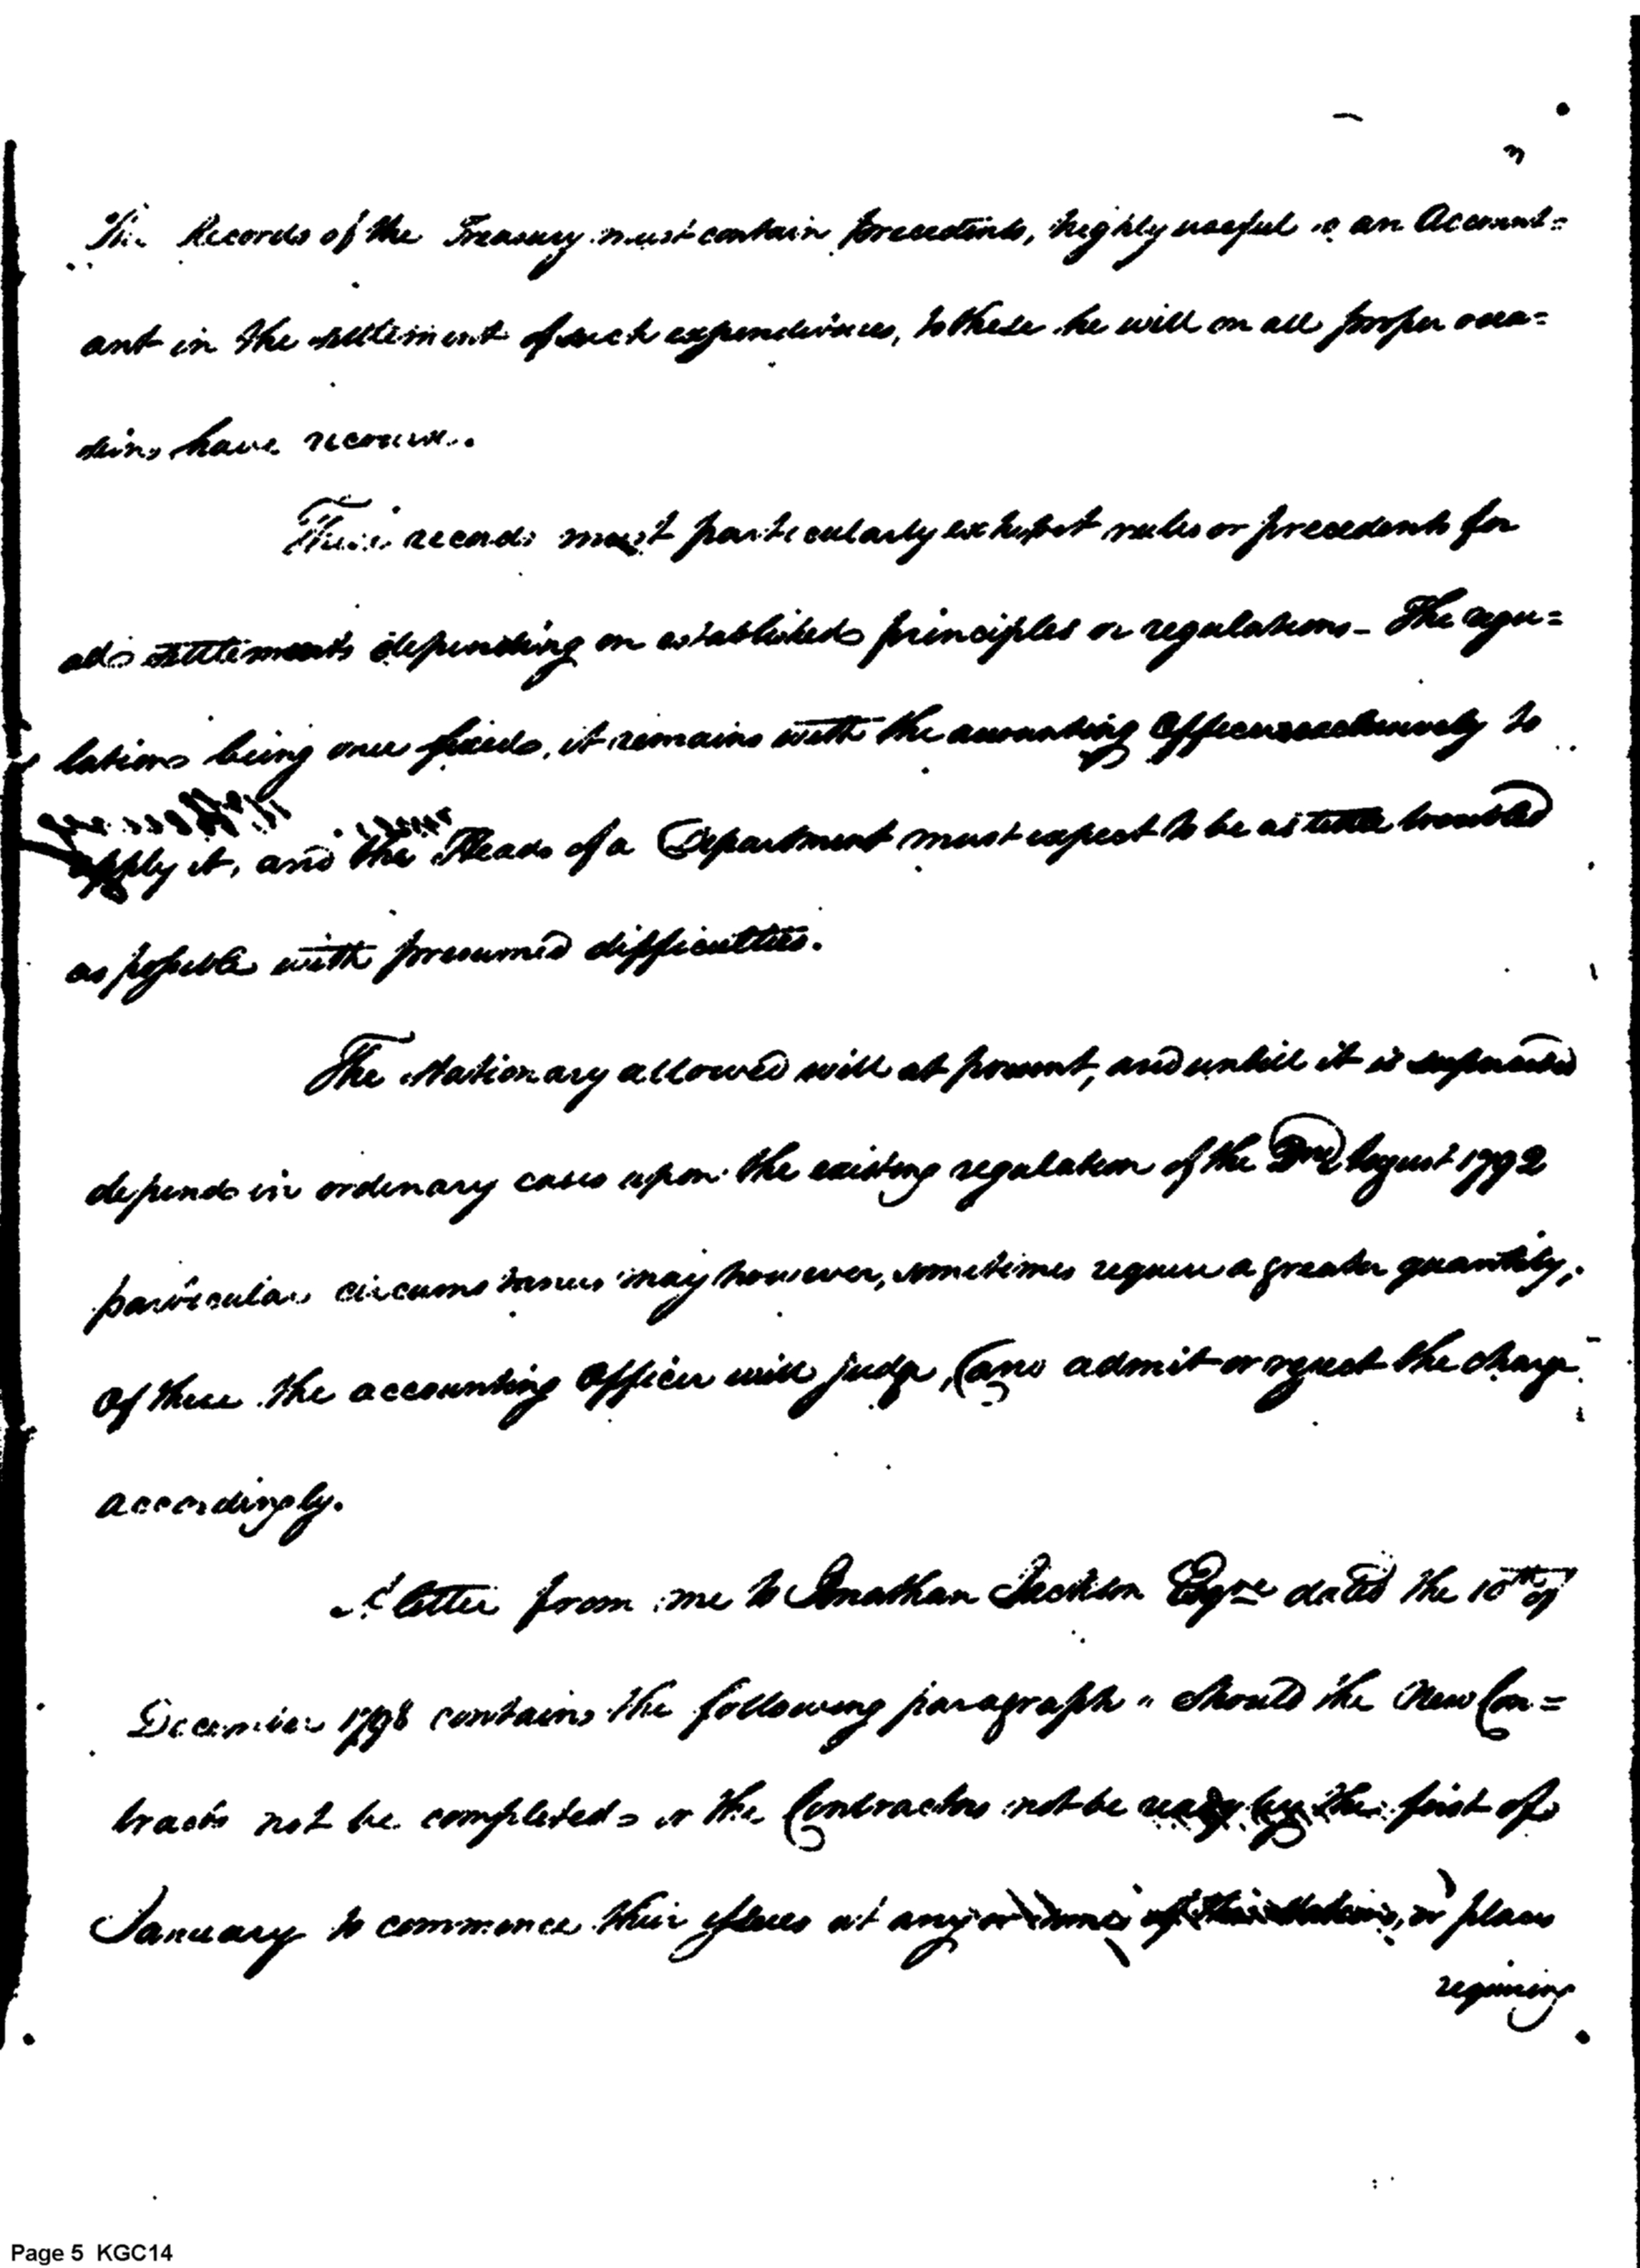 3
The Records of the Treasury must contain precedents, highly useful to an Account=
ant in the settlement of such expenditures, to these he will on all proper occa=
sions have recourse.
These records must particularly exhibit rules or precedents for
all settlements depending on established principles or regulations - The regu=
lations being once fixed, it remains with the accounting Officers exclusively to
apply it, and the Heads of a Department must expect to be as little troubled
as possible with presumed difficulties.
The Stationary allowed will at present, and untill it is superseded
depend in ordinary cases upon the existing regulation of the August 1792
particular circumstances may however, sometimes require a greater quantity,
Of these the accounting Officer will judge, and admit or reject the charge
accordingly.
A letter from me to Jonathan Jackson Esqre dated the 10th of
December 1798 contains the following paragraph " Should the New Con=
tracts not be completed, or the Contractors not be ready by the first of
January to commence their issues at any or some of their Stations, or places
requiring
Page 5 KGC14